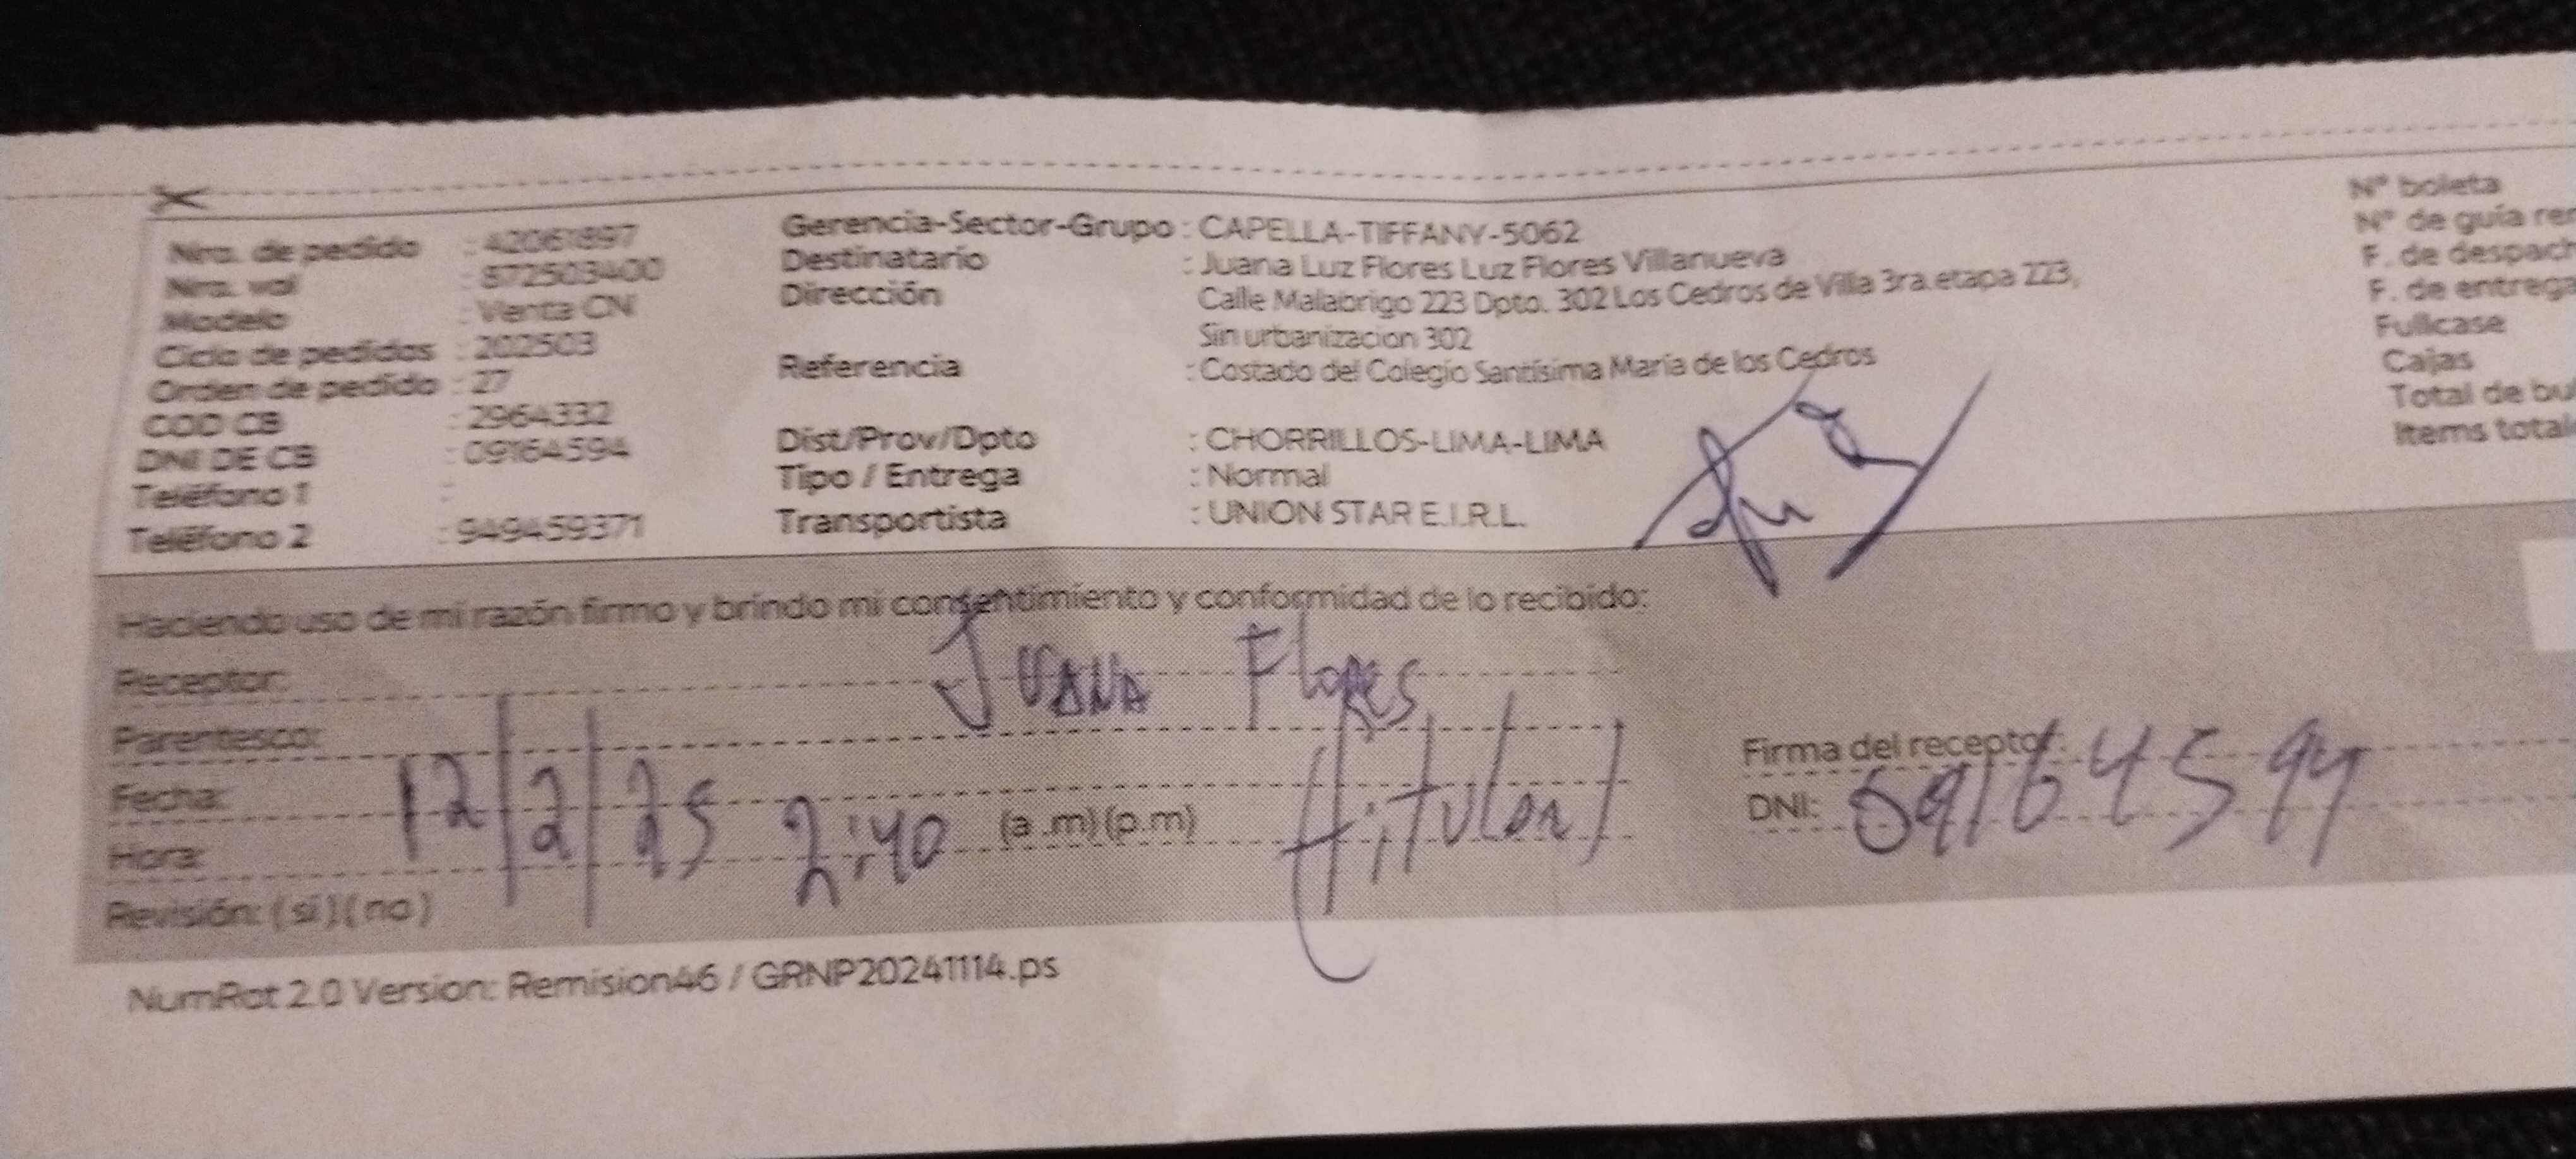 Nro. de pedido : 42061897
Nro. val : 872503400
Modelo : Venta CN
Ciclo de pedidos : 202503
Orden de pedido : 27
COD CB : 2964332
DNI DE CB : 09164594
Teléfono 1 :
Teléfono 2 : 949459371
Gerencia-Sector-Grupo : CAPELLA-TIFFANY-5062
Destinatario : Juana Luz Flores Luz Flores Villanueva
Dirección Calle Malabrigo 223 Dpto. 302 Los Cedros de Villa 3ra.etapa 223,
Sin urbanizacion 302
Referencia : Costado del Colegio Santísima María de los Cedros
Dist/Prov/Dpto : CHORRILLOS-LIMA-LIMA
Tipo / Entrega : Normal
Transportista : UNION STAR E.I.R.L.
N° boleta
N° de guía
F. de despach
F. de entrega
Fullcase
Cajas
Total de
Items total
Haciendo uso de mi razón firmo y brindo mi consentimiento y conformidad de lo recibido:
Receptor: JUANA FloRES
Parentesco: (titular)
Fecha: 12/2/25
Hora: 2:40 (a.m)(p.m)
Revisión: (si)(no)
Firma del receptor:
DNI: 09164594
NumRot 2.0 Version: Remision46 / GRNP20241114.ps